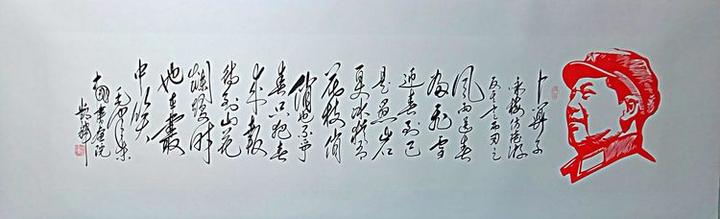 卜算子
反其意而用之
风雨送春
归飞雪
迎春到已
是悬岩
百丈冰犹有
花枝俏
俏也不争
春只把春
来报
待到山花
烂熳时
她在叢
中笑
毛泽东
国书画院